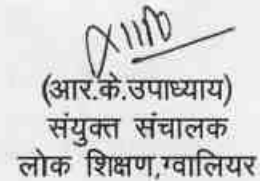 (आर.के.उपाध्याय)
संयुक्त संचालक
लोक शिक्षण,ग्वालियर